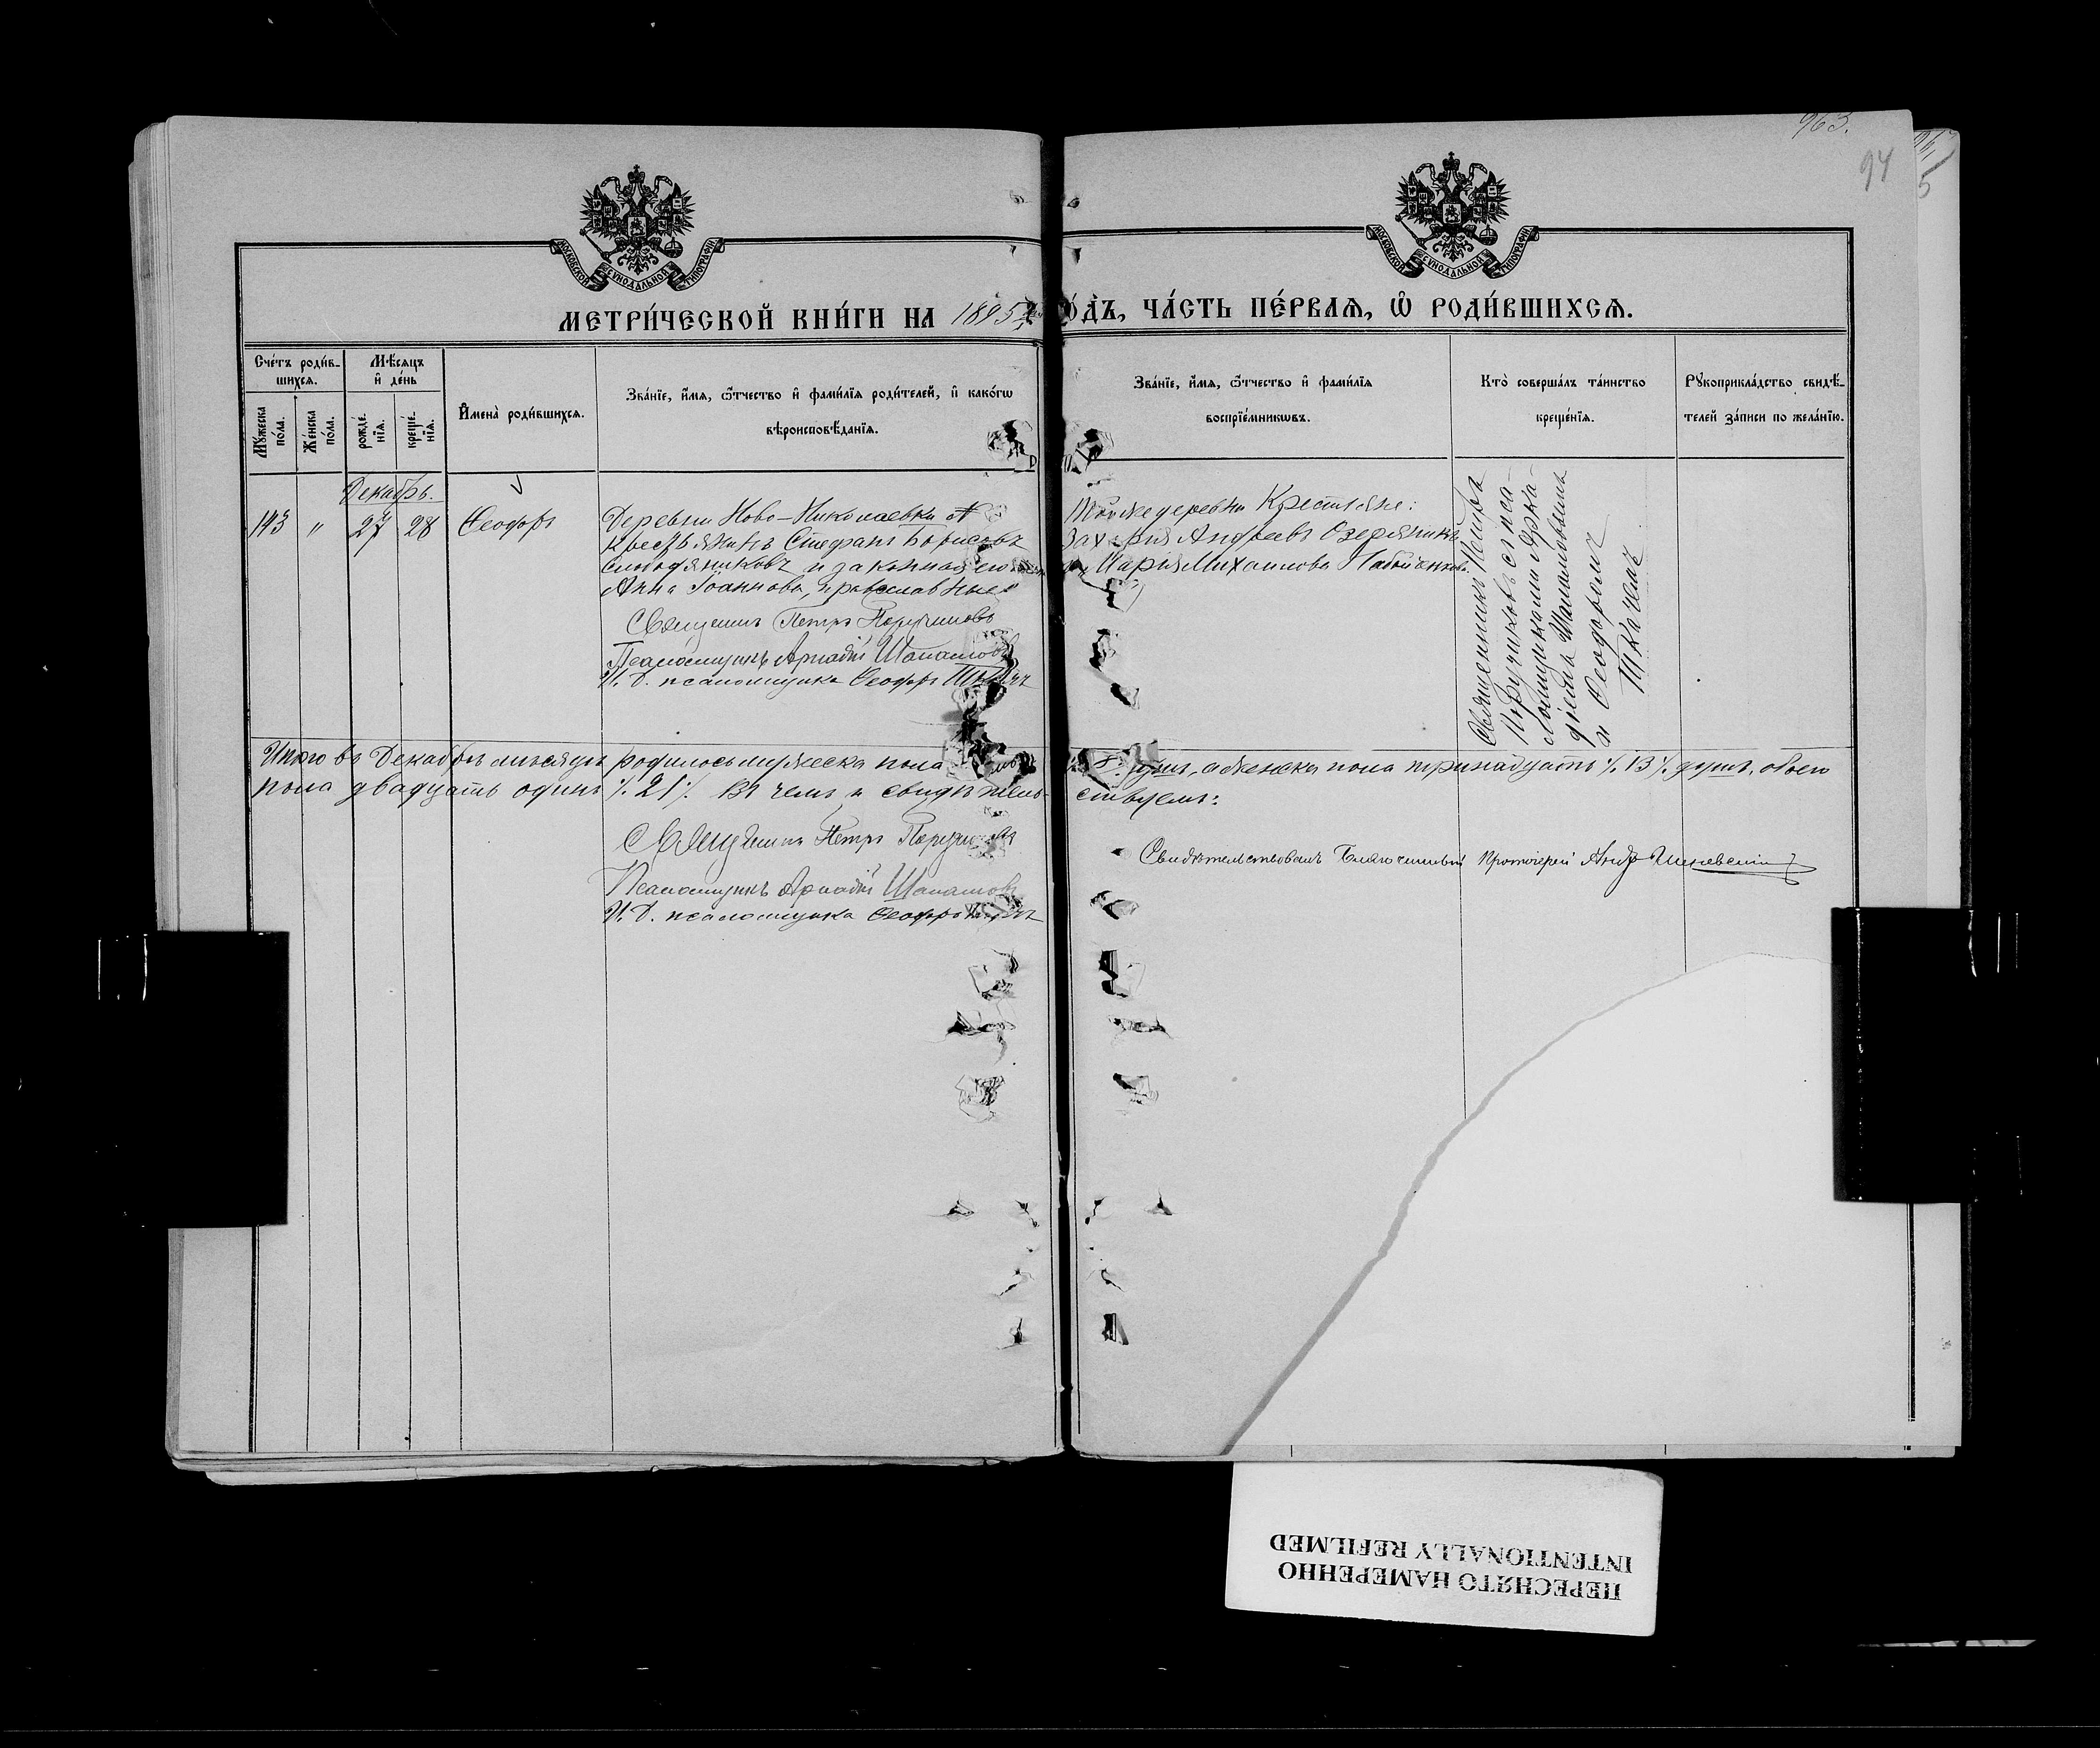 963.
94
5
МОСКОВСКОЙ СУНОДАЛЬНОЙ ТИПОГРАФІИ
МОСКОВСКОЙ СУНОДАЛЬНОЙ ТИПОГРАФІИ
МЕТРИ́ЧЕСКОЙ КНИ́ГИ НА 1895 ГО́ДЪ, ЧА́СТЬ ПЕ́РВАѦ, Ѿ РОДИ́ВШИХСѦ.
Сче́тъ роди́в-
шихсѧ.
Мѣ́сѧцъ
и҆ де́нь
Мꙋ́жеска
по́ла.
Же́нска
по́ла.
рожде́-
нїѧ.
креще́-
нїѧ.
И҆мена̀ роди́вшихсѧ.
Зва́нїе, и҆́мѧ, ѻ҆́тчество и҆ фами́лїѧ роди́телей, и҆ како́гѡ
вѣроисповѣ́данїѧ.
Зва́нїе, и҆́мѧ, ѻ҆́тчество и҆ фами́лїѧ
воспрїе́мникѡвъ.
Кто̀ соверша́лъ та́инство
креще́нїѧ.
Рꙋкоприкла́дство свидѣ́-
телей за́писи по жела́нїю.
Декабрь.
143 " 27 28 Ѳеодоръ
Деревни Ново-Николаевки
крестьянинъ Стефанъ Борисовъ
Слободяниковъ и законная его
Анна Іоаннова, православные
Священникъ Петръ Поручиковъ
Псаломщикъ Аркадій Шапашовъ
И. Д. псаломщика Ѳеодоръ Ткачекъ
Той же деревни Крестьяне:
Захарія Андреевъ Озеряникъ
Марія Михаилова
Священникъ Петръ
Поручиковъ съ пса-
ломщиками Арка-
діемъ
и Ѳеодоромъ
Ткачекъ
Итого въ Декабрѣ мѣсяцѣ родилось мужеска пола 8. душъ, а женска пола тринадцать % 13 % душъ, обоего
пола двадцать одинъ % 21 % Въ чемъ и свидѣтель- ствуемъ:
Священникъ Петръ Поручиковъ
Псаломщикъ Аркадій Шапашовъ
И. Д. псаломщика Ѳеодоръ Ткачекъ
Свидѣтельствовалъ Благочинный Протоіерей
ПЕРЕСНЯТО НАМЕРЕННО
INTENTIONALLY REFILMED